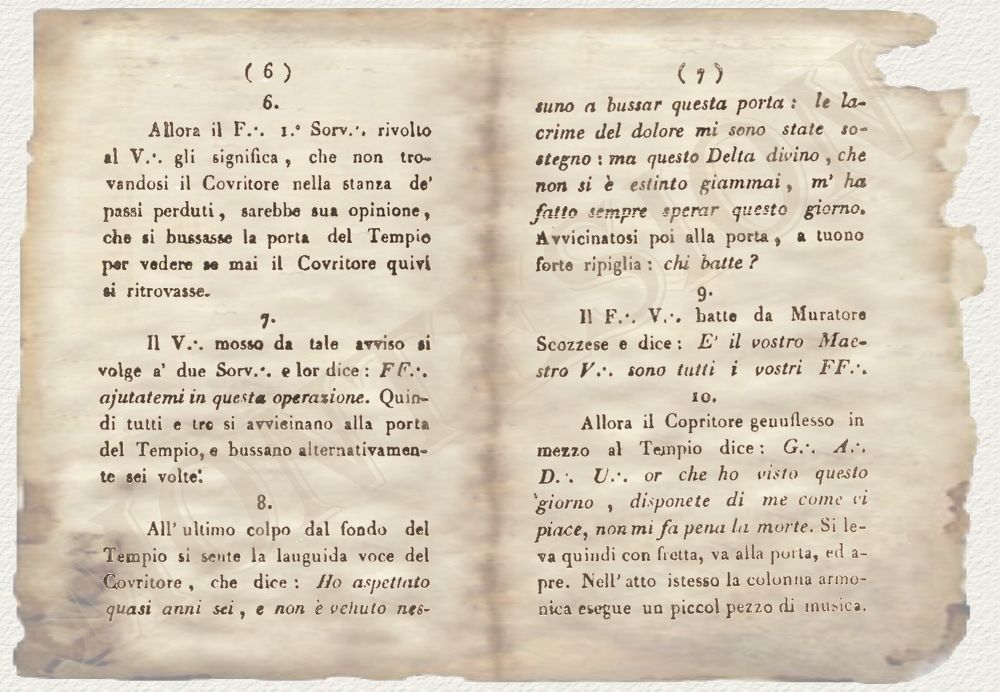 ( 6 )
6.
Allora il F.·. 1.° Sorv.·. rivolto
al V.·. gli significa , che non tro-
vandosi il Covritore nella stanza de'
passi perduti , sarebbe sua opinione ,
che si bussasse la porta del Tempio
per vedere se mai il Covritore quivi
si ritrovasse.
7.
Il V.·. mosso da tale avviso si
volge a' due Sorv.·. e lor dice : FF.·.
ajutatemi in questa operazione. Quin-
di tutti e tre si avvicinano alla porta
del Tempio, e bussano alternativamen-
te sei volte.
8.
All' ultimo colpo dal fondo del
Tempio si sente la languida voce del
Covritore , che dice : Ho aspettato
quasi anni sei , e non è venuto nes-
( 7 )
suno a bussar questa porta : le la-
crime del dolore mi sono state so-
stegno : ma questo Delta divino , che
non si è estinto giammai , m' ha
fatto sempre sperar questo giorno.
Avvicinatosi poi alla porta , a tuono
forte ripiglia : chi batte ?
9.
Il F.·. V.·. batte da Muratore
Scozzese e dice : E' il vostro Mae-
stro V.·. sono tutti i vostri FF.·.
10.
Allora il Copritore genuflesso in
mezzo al Tempio dice : G.·. A.·.
D.·. U.·. or che ho visto questo
giorno , disponete di me come vi
piace, non mi fa pena la morte. Si le-
va quindi con fretta, va alla porta, ed a-
pre. Nell' atto istesso la colonna armo-
nica esegue un piccol pezzo di musica.